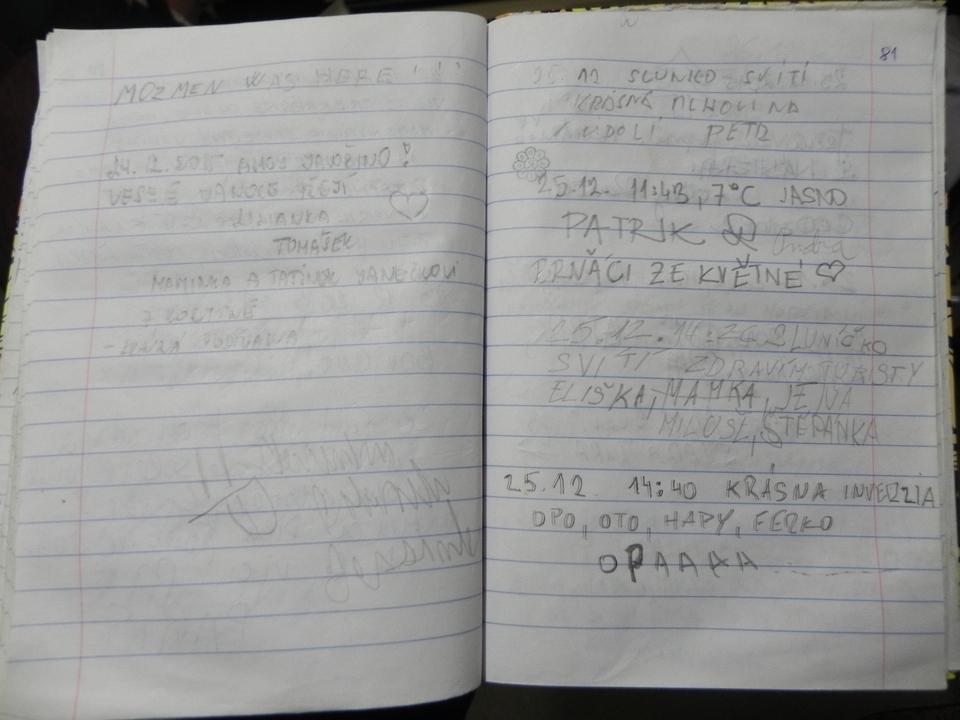 MOZMEN WAS HERE ! ! !
24.12.2015 AHOJ JAVOŘINO!
VESELÉ VÁNOCE PŘEJÍ
LILIANKA
TOMÁŠEK
MAMINKA A TATÍNEK JANEČKOVI
Z
81
25.12 SLUNKO SVÍTÍ
KRÁSNÁ MLHOVINA
V ÚDOLÍ PETR
25.12. 11:43, 7°C JASNO
PATRIK
ERŇÁCI ZE KVĚTNÉ
25.12. 14:26 SLUNÍČKO
SVÍTÍ ZDRAVÍM TURISTY
ELIŠKA, MAMKA,
MILOŠ, ŠTĚPÁNKA
25.12 14:40 KRÁSNA INVERZIA
OPO, OTO, HAPY, FERKO
OPAAAA